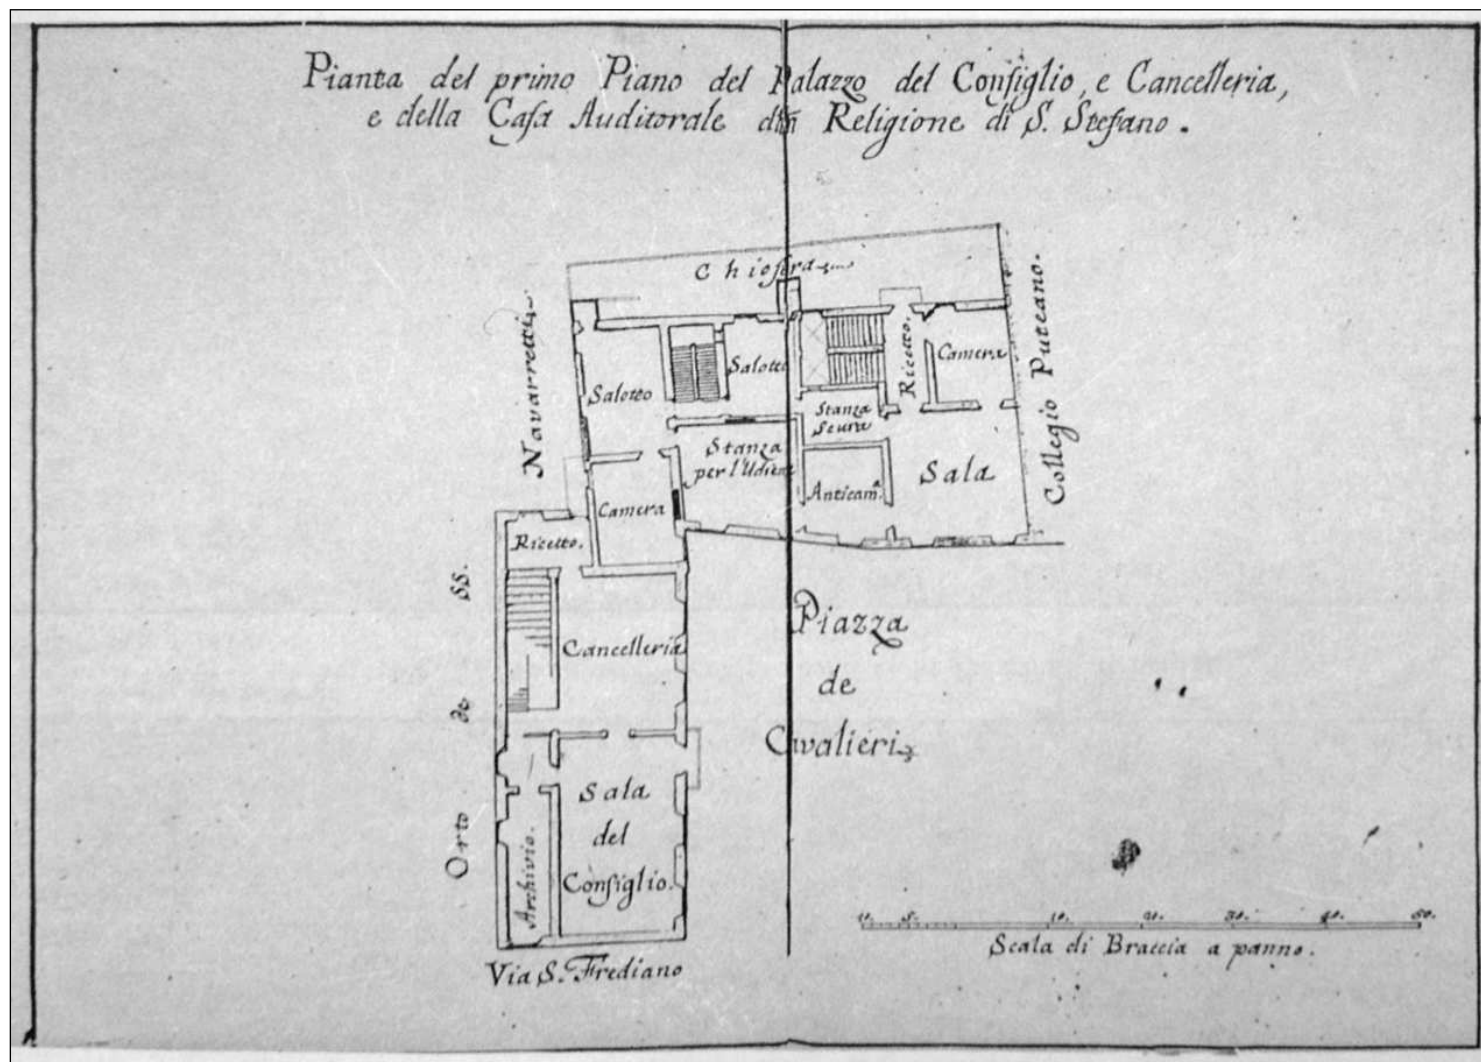 Pianta del primo Piano del Palazzo del Consiglio, e Cancelleria,
e della Casa Auditorale Religione di S. Stefano.
Chiostra
Navarretti
Collegio Puteano.
Salotto
Salotto
Ricetto.
Camera
Stanza
Scura
Stanza
per l'Udienz
Anticam.ª
Sala
Camera
Ricetto.
Orto de SS.
Cancelleria
Piazza
de
Cavalieri
Sala
del
Consiglio.
Archivio.
Via S. Frediano
10. 5. 10. 20. 30. 40. 50.
Scala di Braccia a panno.